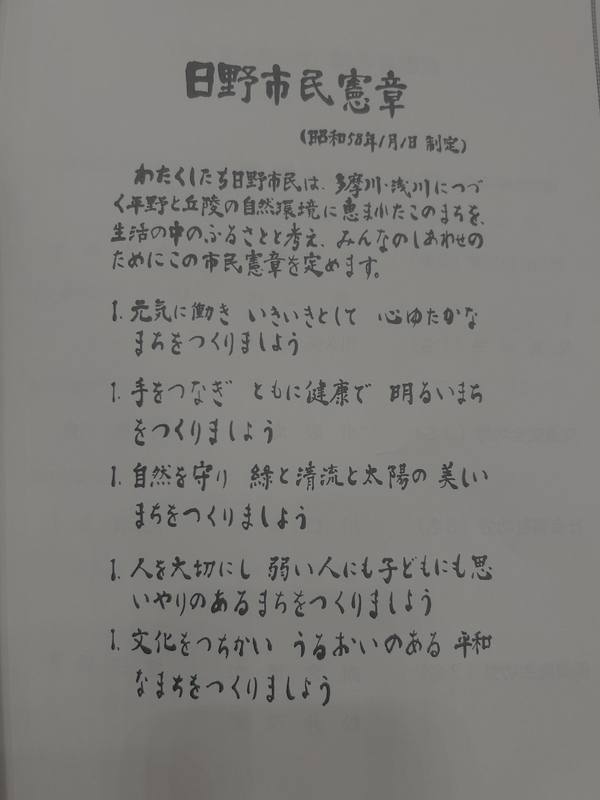 日野市民憲章
(昭和58年1月1日 制定)
わたくしたち日野市民は、多摩川・浅川につづ
く平野と丘陵の自然環境に恵まれたこのまちを、
生活の中のふるさとと考え、みんなのしあわせの
ためにこの市民憲章を定めます。
1. 元気に働き いきいきとして 心ゆたかな
まちをつくりましよう
1. 手をつなぎ ともに健康で 明るいまち
をつくりましよう
1. 自然を守り 緑と清流と太陽の 美しい
まちをつくりましよう
1. 人を大切にし 弱い人にも子どもにも思
いやりのあるまちをつくりましよう
1. 文化をつちかい うるおいのある 平和
なまちをつくりましよう